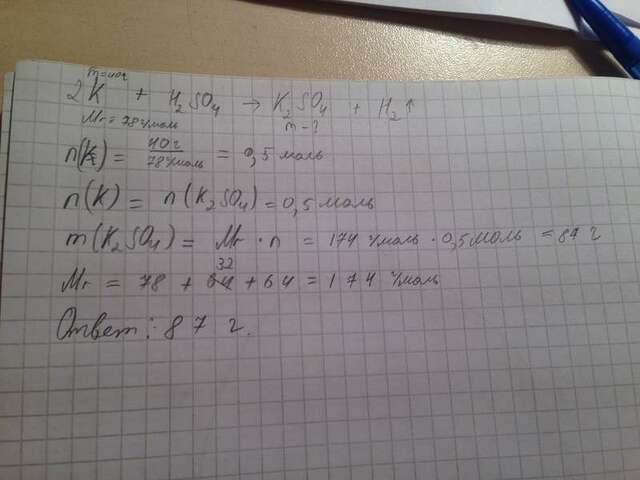 m=40г
2K + H₂SO₄ → K₂SO₄ + H₂↑
Mr = 78г/моль m - ?
n(K) = 40г / 78г/моль = 0,5 моль
n(K) = n(K₂SO₄) = 0,5 моль
m(K₂SO₄) = Mr · n = 174 г/моль · 0,5 моль = 87 г
Mr = 78 + 32 + 64 = 174 г/моль
Ответ: 87 г.